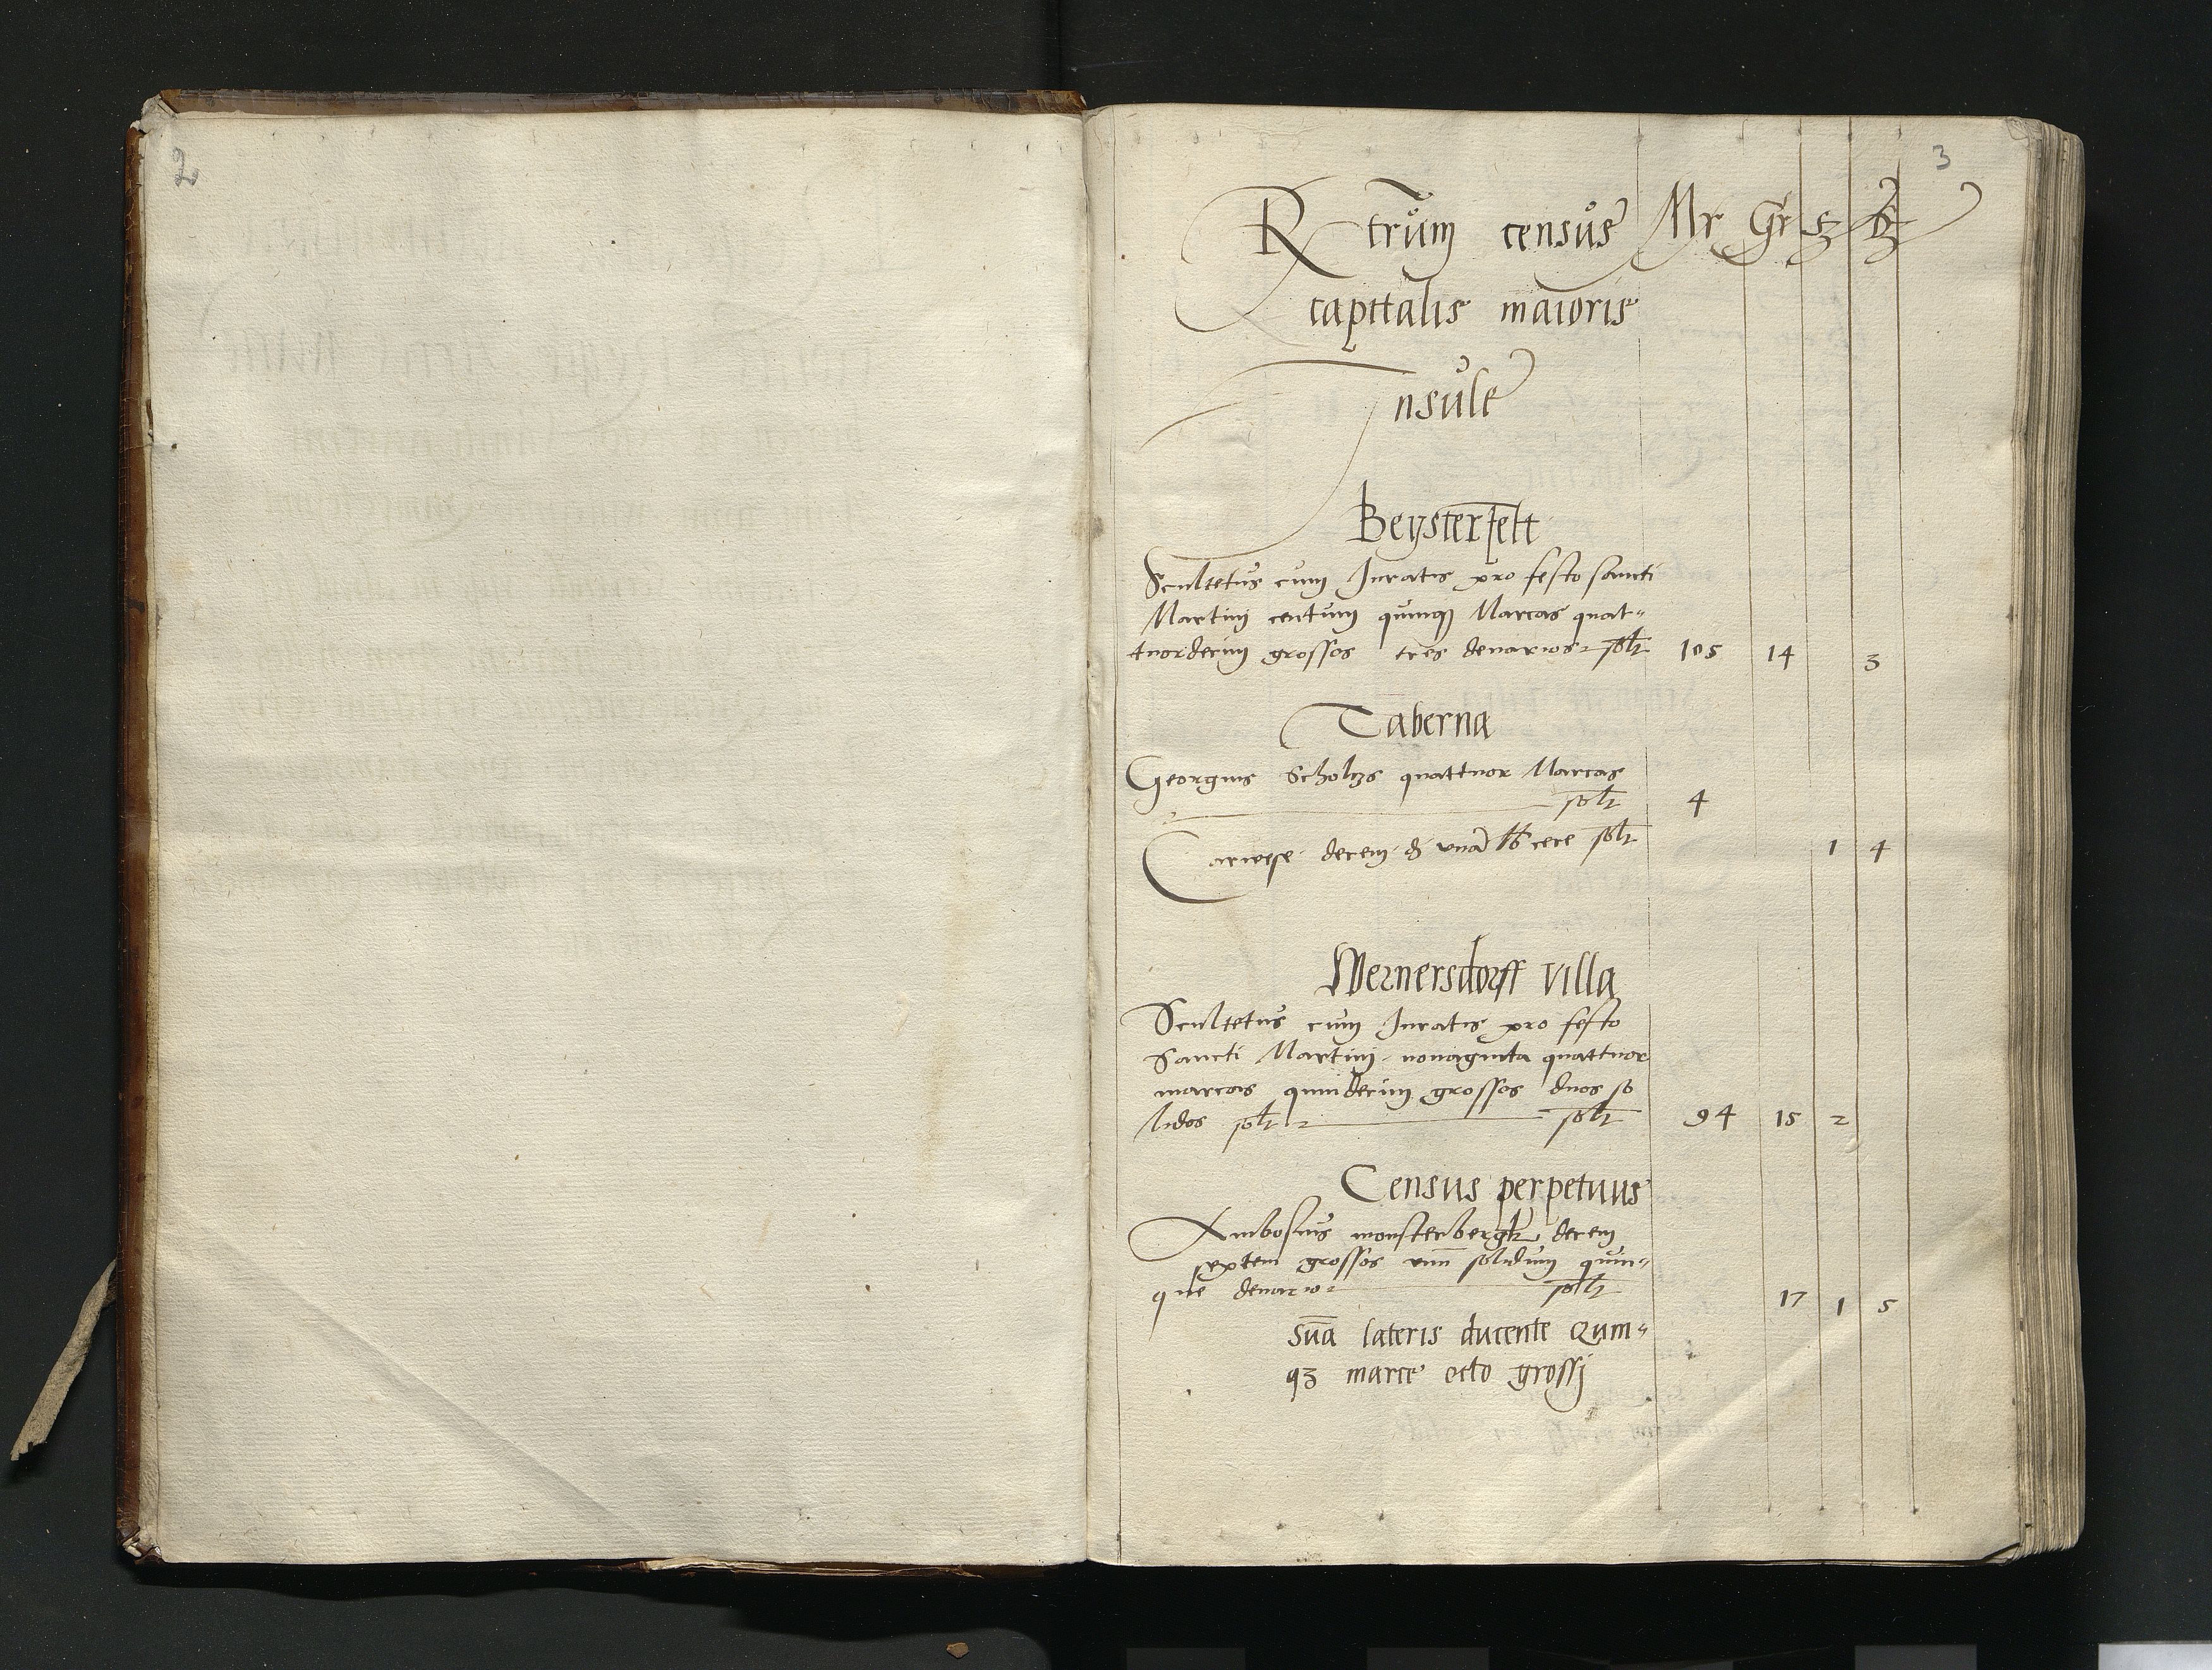 2
3
Rtrūm censūs Mr Gr ß ₰
capitalis maioris
Insule
Beysterfelt
Scultetus cum Juratis pro festo sancti
Martinj centum quinq Marcas quat-
tuordecim grossos tres denarios solt 105 14 3
Taberna
Georgius Scholtzs quattuor Marcas
solt 4
Carwese decem ₰ vnā lb cere solt 1 4
Wernersdorff villa
Scultetus cum Juratis pro festo
Sancti Martinj nonaginta quattuor
marcas quindecim grossos duos so
lidos solt solt 94 15 2
Census perpetuus
Ambosius monsterbergk decem
septem grossos vnū solidum quin-
que denario solt 17 1 5
Sūa lateris ducente Quin-
qз marce octo grossj